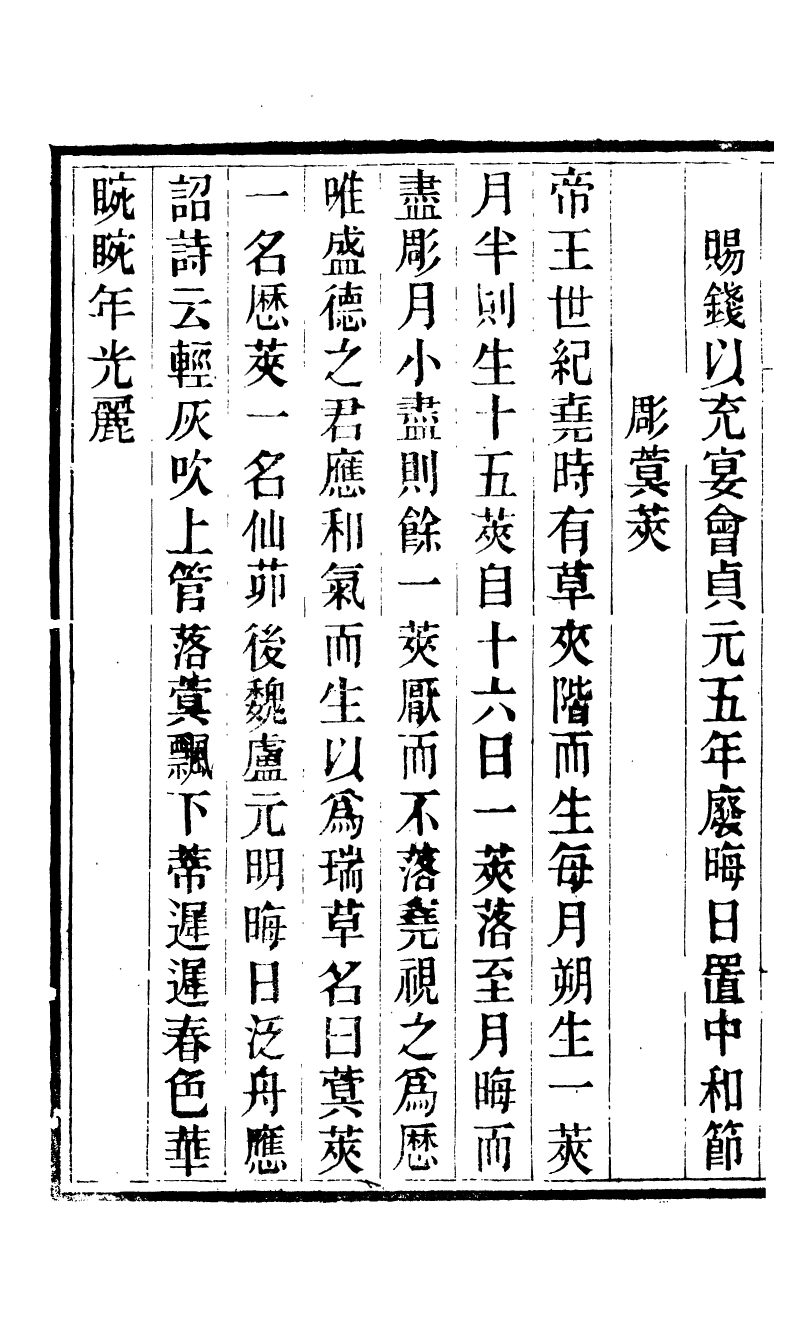 賜錢以充宴會貞元五年廢晦日置中和節
彫蓂莢
帝王世紀堯時有草夾階而生每月朔生一莢
月半則生十五莢自十六日一莢落至月晦而
盡彫月小盡則餘一莢厭而不落堯視之爲厯
唯盛德之君應和氣而生以爲瑞草名曰蓂莢
一名厯莢一名仙茆後魏盧元明晦日泛舟應
詔詩云輕灰吹上管落蓂飄下蒂遲遲春色華
晼晼年光麗